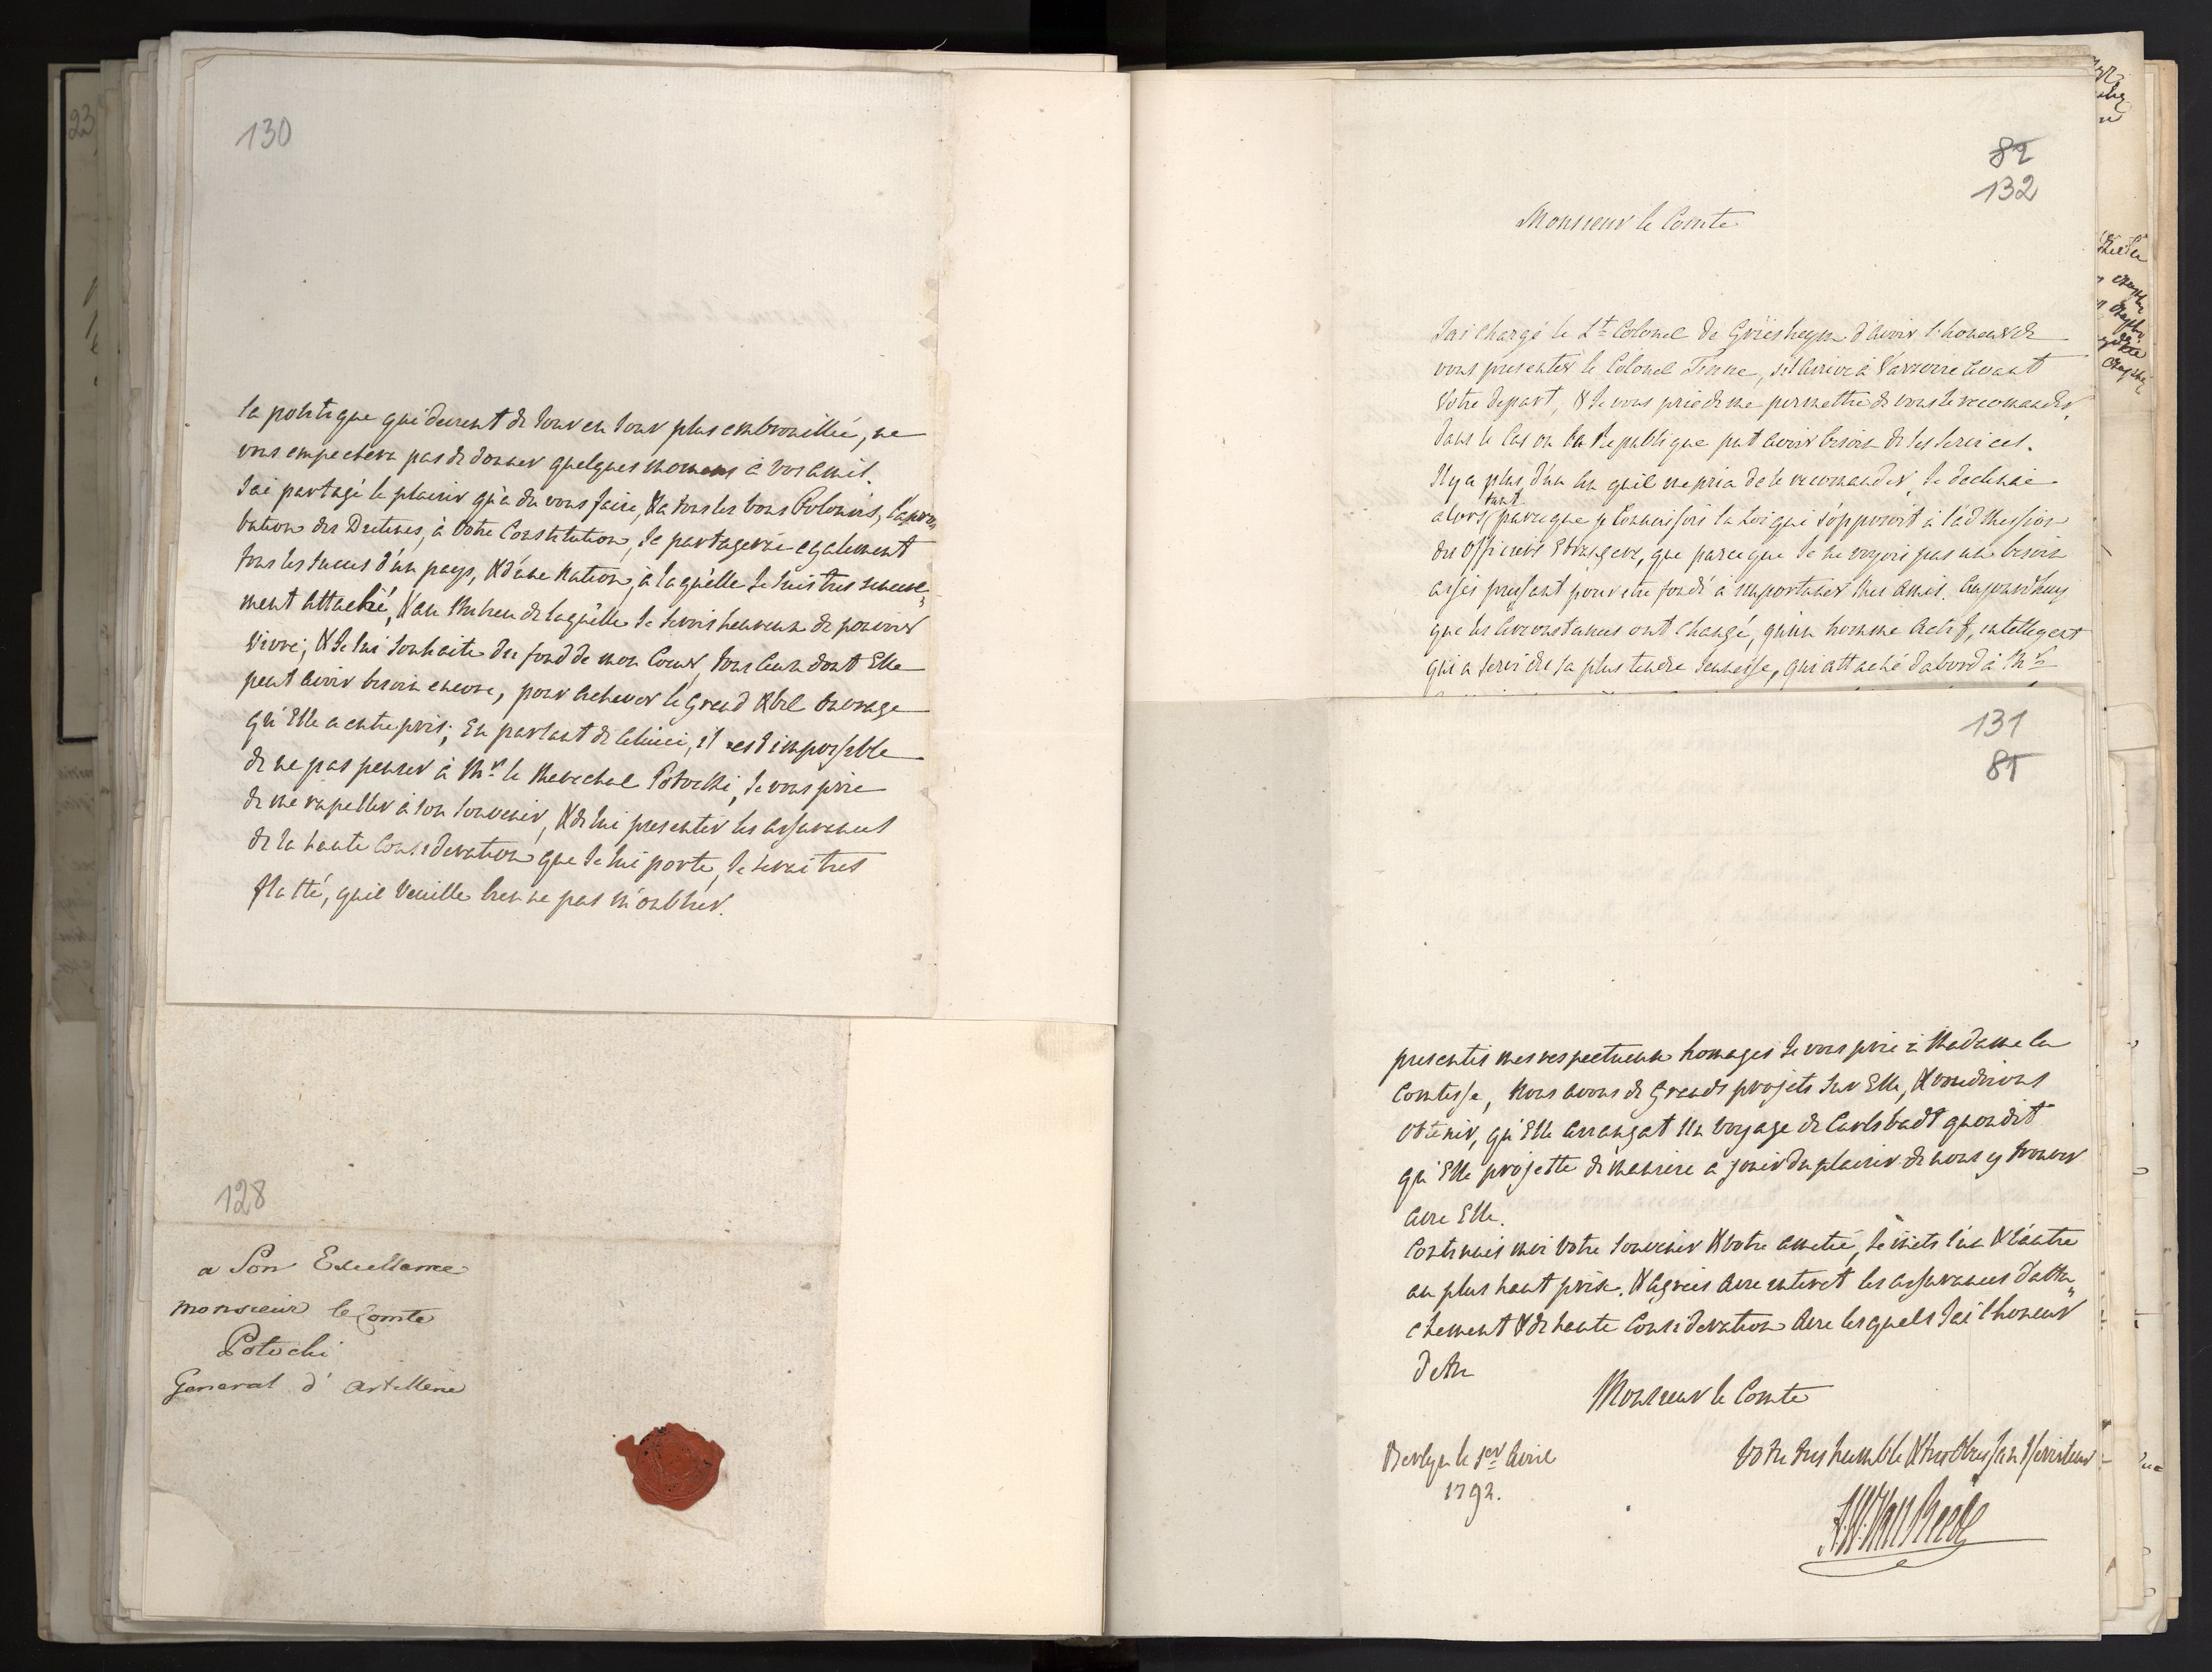 130
la politique qui devient de Jour en Jour plus embrouillée, ne
vous empechera pas de donner quelques momens à vos amis.
J'ai partagé le plaisir qu'a du vous faire, & a tous les bons Polonois, l'apro,
bation des Dietines, à Votre Constitution, Je partagerai egalement
tous les succes d'un pays, & d'une Nation, à laquelle Je suis tres sincere,
ment attaché, & au Milieu de laquelle Je serois heureux de pouvoir
vivre; & Je lui souhaite du fond de mon Coeur, tous ceux dont Elle
peut avoir besoin encore, pour achever le Grand & bel ouvrage
qu'Elle a entrepris; En parlant de celui ci, il est impossible
de ne pas penser à Mr. le Marechal Potocki, Je vous prie
de me rapeller à son souvenir, & de lui presenter les assurances
de la haute Consideration que Je lui porte, Je serai tres
flatté, qu'il Veuille bien ne pas m'oublier.
128
a Son Excellence
monsieur le Comte
Potocki
General d'Artillerie
82
132
Monsieur le Comte
J'ai chargé le Lt. Colonel de Griesheym d'avoir l'honeur de
vous presenter le Colonel Tenne, s'il arrive à Varsovie avant
Votre depart, & Je vous prie de me permettre de vous le recomander,
dans le Cas ou la Republique put avoir besoin de ses services.
Il y a plus d'un An qu'il me pria de le recomander, Je declinai
alors, tant parceque je connaissois la Loi qui s'opposoit à l'admission
des Officiers Etrangers, que parceque Je ne voyois pas un besoin
assés pressant pour etre fondé à importuner Mes amis. Aujourdhuy
que les Circonstances ont changé, qu'un homme Actif, intelligent
qui a servi des sa plus tendre Jeunesse, qui attaché d'abord à Mr.
131
81
presentés mes respectueux homages Je vous prie à Madame la
Comtesse, Nous avons de Grands projets sur Elle, & voudrions
obtenir, qu'Elle arrangat un voyage de Carlsbadt qu'on dit
qu'Elle projette de maniere a jouir du plaisir de nous y trouver
avec Elle.
Continués moi Votre Souvenir & votre amitié, Je mets l'un & l'autre
au plus haut prix, & agrees avec interet les assurances d'atta,
chement & de haute Consideration avec lesquels J'ai l'honeur
d'etre
Monsieur le Comte
Berlyn le 1er Avril
1792.
Votre tres humble & tres obeissant Serviteur
A.W. Van Reede